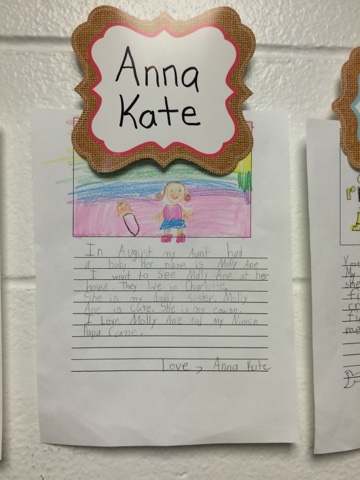 Anna
Kate
In Augipt my Aunt had
a baby. Her name is Molly Ane
I want to see Molly Ane at her
house. They live in Charlotte.
She is my dad's sister. Molly
Ane is cute. She is my cousin.
I Love Molly Ane and my Ninise
Papa Came.
Love, Anna Kate